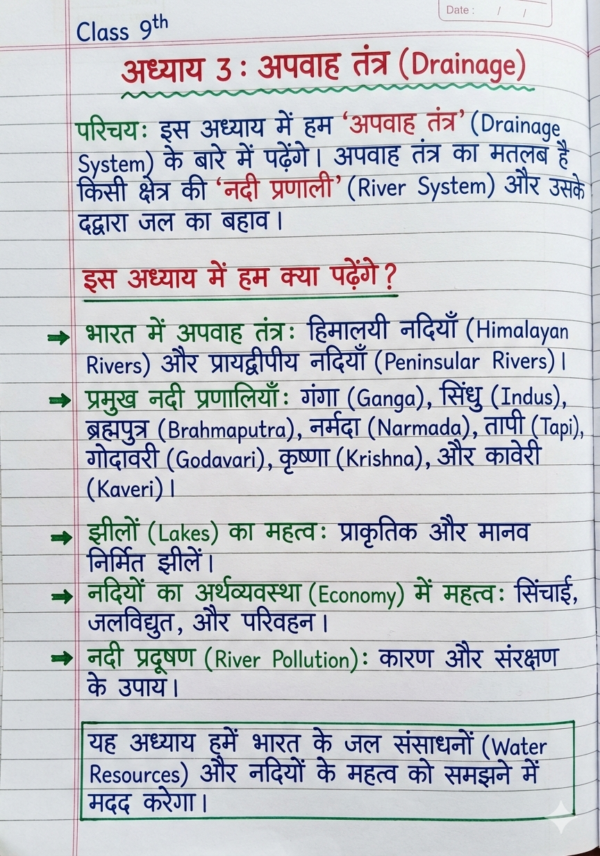 Date : / /
Class 9th
अध्याय 3 : अपवाह तंत्र (Drainage)
परिचय: इस अध्याय में हम ‘अपवाह तंत्र’ (Drainage
System) के बारे में पढ़ेंगे। अपवाह तंत्र का मतलब है
किसी क्षेत्र की ‘नदी प्रणाली’ (River System) और उसके
दद्वारा जल का बहाव।
इस अध्याय में हम क्या पढ़ेंगे?
→ भारत में अपवाह तंत्र: हिमालयी नदियाँ (Himalayan
Rivers) और प्रायद्वीपीय नदियाँ (Peninsular Rivers)।
→ प्रमुख नदी प्रणालियाँ: गंगा (Ganga), सिंधु (Indus),
ब्रह्मपुत्र (Brahmaputra), नर्मदा (Narmada), तापी (Tapi),
गोदावरी (Godavari), कृष्णा (Krishna), और कावेरी
(Kaveri)।
→ झीलों (Lakes) का महत्व: प्राकृतिक और मानव
निर्मित झीलें।
→ नदियों का अर्थव्यवस्था (Economy) में महत्व: सिंचाई,
जलविद्युत, और परिवहन।
→ नदी प्रदूषण (River Pollution): कारण और संरक्षण
के उपाय।
यह अध्याय हमें भारत के जल संसाधनों (Water
Resources) और नदियों के महत्व को समझने में
मदद करेगा।